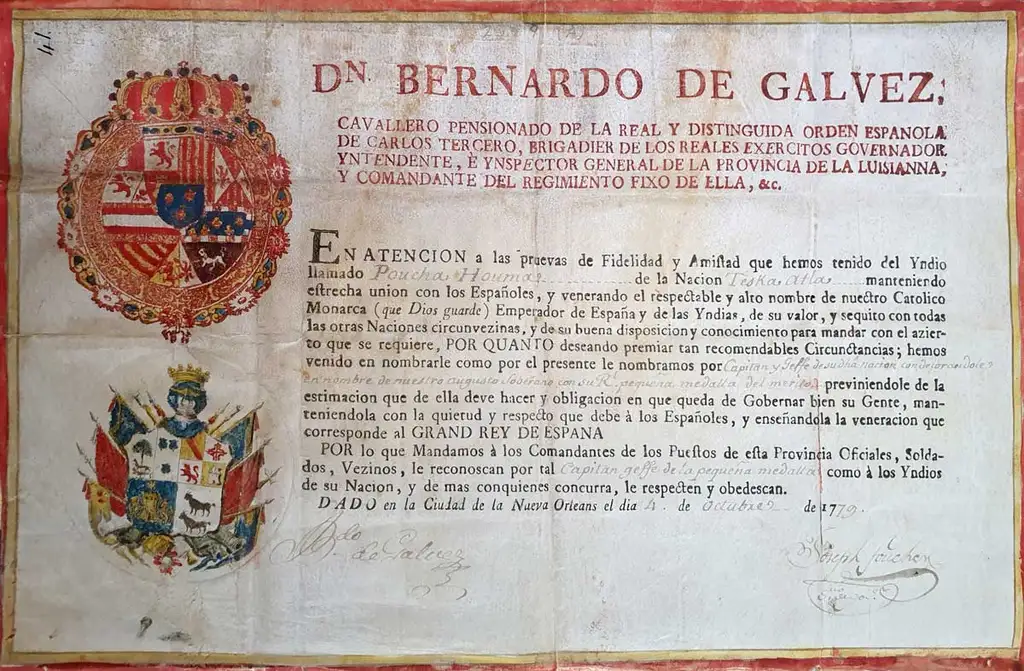 41.
DN. BERNARDO DE GALVEZ;
CAVALLERO PENSIONADO DE LA REAL Y DISTINGUIDA ORDEN ESPANOLA
DE CARLOS TERCERO, BRIGADIER DE LOS REALES EXERCITOS GOVERNADOR
YNTENDENTE, È YNSPECTOR GENERAL DE LA PROVINCIA DE LA LUISIANNA,
Y COMANDANTE DEL REGIMIENTO FIXO DE ELLA, &c.
EN ATENCION a las pruevas de Fidelidad y Amiſtad que hemos tenido del Yndio
llamado Poucha Houma de la Nacion Teska Atla manteniendo
eſtrecha union con los Eſpañoles, y venerando el reſpectable y alto nombre de nueſtro Catolico
Monarca (que Dios guarde) Emperador de Eſpaña y de las Yndias, de su valor, y sequito con todas
las otras Naciones circunvezinas, y de su buena diſposicion y conocimiento para mandar con el azier-
to que se requiere, POR QUANTO deseando premiar tan recomendables Circunſtancias; hemos
venido en nombrarle como por el presente le nombramos por Capitan y Geffe de su dha nacion condecorandole
en nombre de nuestro augusto Soberano con su R. pequeña medalla del merito, previniendole de la
eſtimacion que de ella deve hacer y obligacion en que queda de Gobernar bien su Gente, man-
teniendola con la quietud y reſpecto que debe à los Eſpañoles, y enseñandola la veneracion que
correſponde al GRAND REY DE ESPANA
POR lo que Mandamos à los Comandantes de los Pueſtos de eſta Provincia Oficiales, Solda-
dos, Vezinos, le reconoscan por tal Capitan geffe de la pequeña medalla como à los Yndios
de su Nacion, y de mas conquienes concurra, le reſpecten y obedescan.
DADO en la Ciudad de la Nueva Orleans el dia 4 de Octubre de 1779.
Bdo de Galvez
Joseph